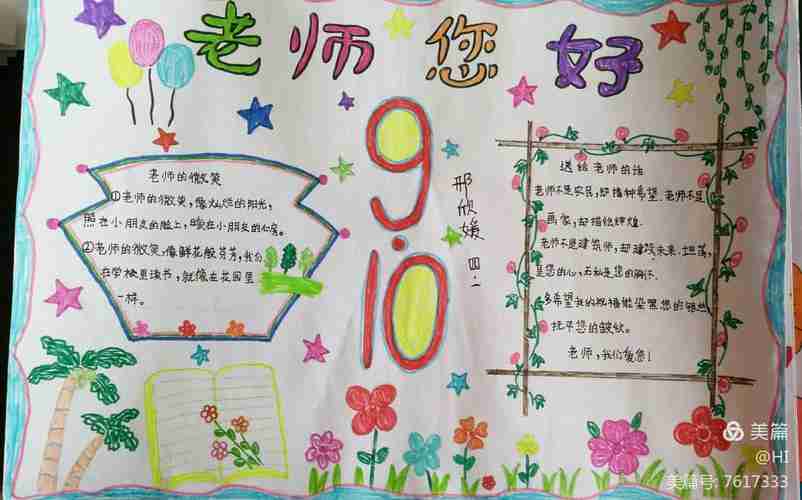 老师您好
9.10
邢欣媛 四.二
老师的微笑
①老师的微笑，像灿烂的阳光，
照在小朋友的脸上，暖在小朋友的心房。
②老师的微笑，像鲜花般芬芳，我们
在学校里读书，就像在花园里
一样。
送给老师的话
老师不是农民，却播种希望．老师不是
画家，却描绘辉煌．
老师不是建筑师，却建设未来．坦荡
是您的心，无私是您的胸怀．
多希望我的祝福能染黑您的
抚平您的皱纹．
老师，我们爱您！
美篇
@HI
美篇号: 7617333